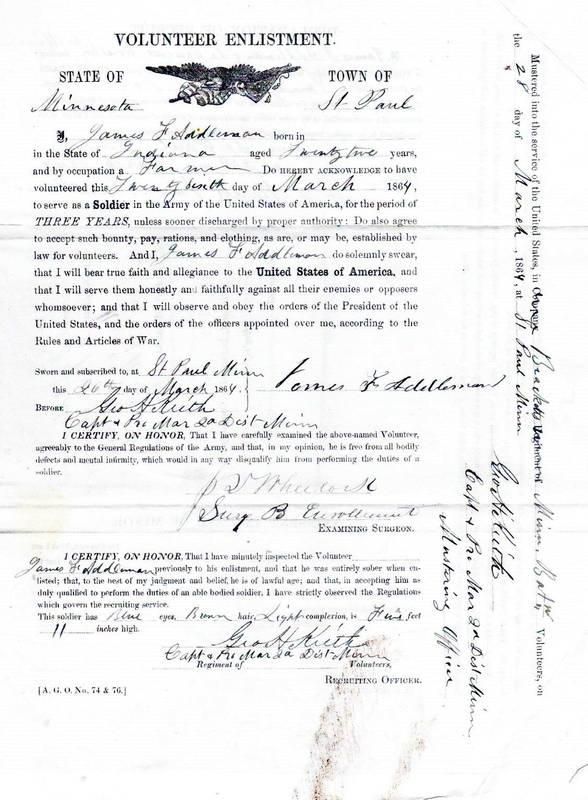 VOLUNTEER ENLISTMENT.
STATE OF TOWN OF
Minnesota St Paul
I, James F Addleman born in
in the State of Indiana aged Twenty two years,
and by occupation a Farmer Do HEREBY ACKNOWLEDGE to have
volunteered this Twenty sixth day of March 1864,
to serve as a Soldier in the Army of the United States of America, for the period of
THREE YEARS, unless sooner discharged by proper authority: Do also agree
to accept such bounty, pay, rations, and clothing, as are, or may be, established by
law for volunteers. And I, James F Addleman do solemnly swear,
that I will bear true faith and allegiance to the United States of America, and
that I will serve them honestly and faithfully against all their enemies or opposers
whomsoever; and that I will observe and obey the orders of the President of the
United States, and the orders of the officers appointed over me, according to the
Rules and Articles of War.
Sworn and subscribed to, at St Paul Minn
this 26th day of March 1864 James F Addleman
BEFORE Geo H Keith
Capt & Pro Mar 2d Dist Minn
I CERTIFY, ON HONOR, That I have carefully examined the above-named Volunteer,
agreeably to the General Regulations of the Army, and that, in my opinion, he is free from all bodily
defects and mental infirmity, which would in any way disqualify him from performing the duties of a
soldier.
Wheelock
Surg B Enrollment
EXAMINING SURGEON.
I CERTIFY, ON HONOR, That I have minutely inspected the Volunteer
James F Addleman previously to his enlistment, and that he was entirely sober when en-
listed; that, to the best of my judgment and belief, he is of lawful age; and that, in accepting him as
duly qualified to perform the duties of an able bodied soldier, I have strictly observed the Regulations
which govern the recruiting service.
This soldier has Blue eyes, Brown hair, Light complexion, is Five feet
11 inches high.
Geo H Keith
Capt & Pro Mar 2d Dist Minn
Regiment of Volunteers,
RECRUITING OFFICER.
[A. G. O. No. 74 & 76.]
Mustered into the service of the United States, in Company Bracketts Regiment Minn Batn Volunteers, on
the 28 day of March, 1864, at St Paul Minn
Geo H Keith
Capt & Pro Mar 2d Dist Minn.
Mustering Officer